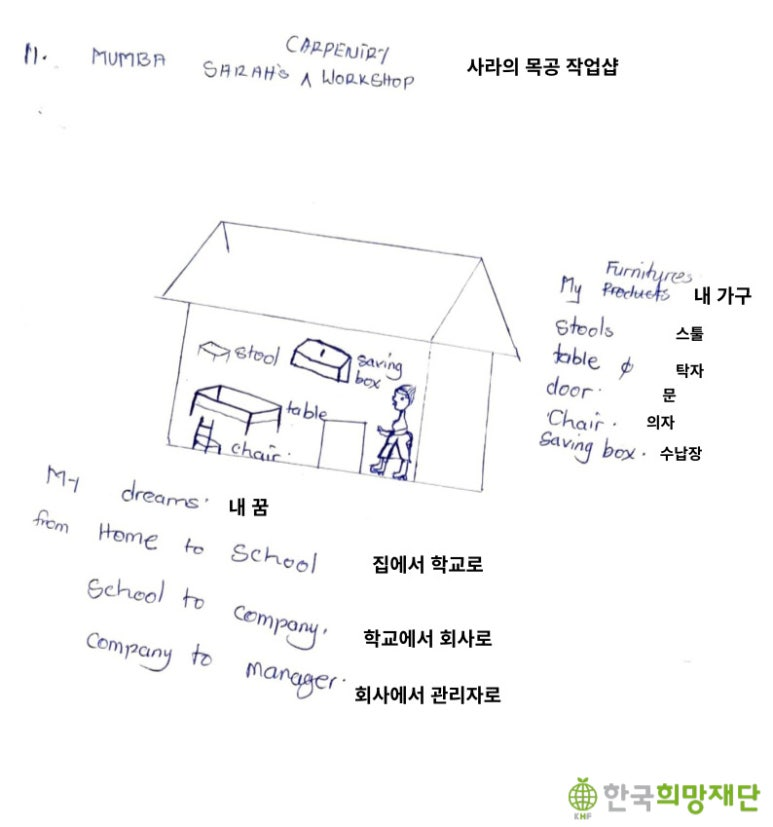 11. MUMBA
CARPENTRY
SARAH'S ^ WORKSHOP
사라의 목공 작업샵
stool
saving
box
table
chair.
Furnityres
My Products
내 가구
stools
스툴
table &
탁자
door.
문
Chair.
의자
Saving box.
수납장
My dreams.
내 꿈
from Home to School
집에서 학교로
School to Company.
학교에서 회사로
Company to manager.
회사에서 관리자로
KHF
한국희망재단